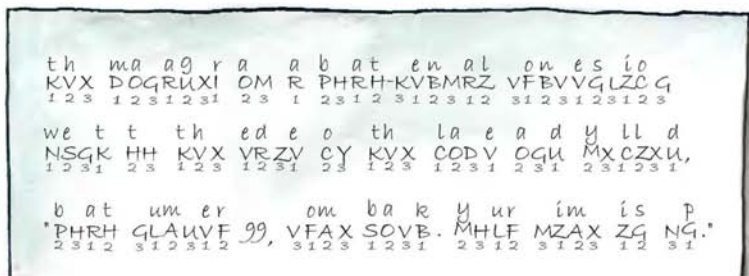 th ma agra a bat en al on es io
KVX DOGRUXI OM R PHRH-KVBMRZ VFBVVGLZCG
123 1231231 23 1 2312 312312 3123123123
we t t th ed e o th la e a d y ll d
NSGK HH KVX VRZV CY KVX CODV OGU MXCZXU,
1231 23 123 1231 23 123 1231 231 231231
b at um er om ba k y ur im is p
"PHRH GLAUVF 99, VFAX SOVB. MHLF MZAX ZG NG."
2312 312312 3123 1231 2312 3123 12 31